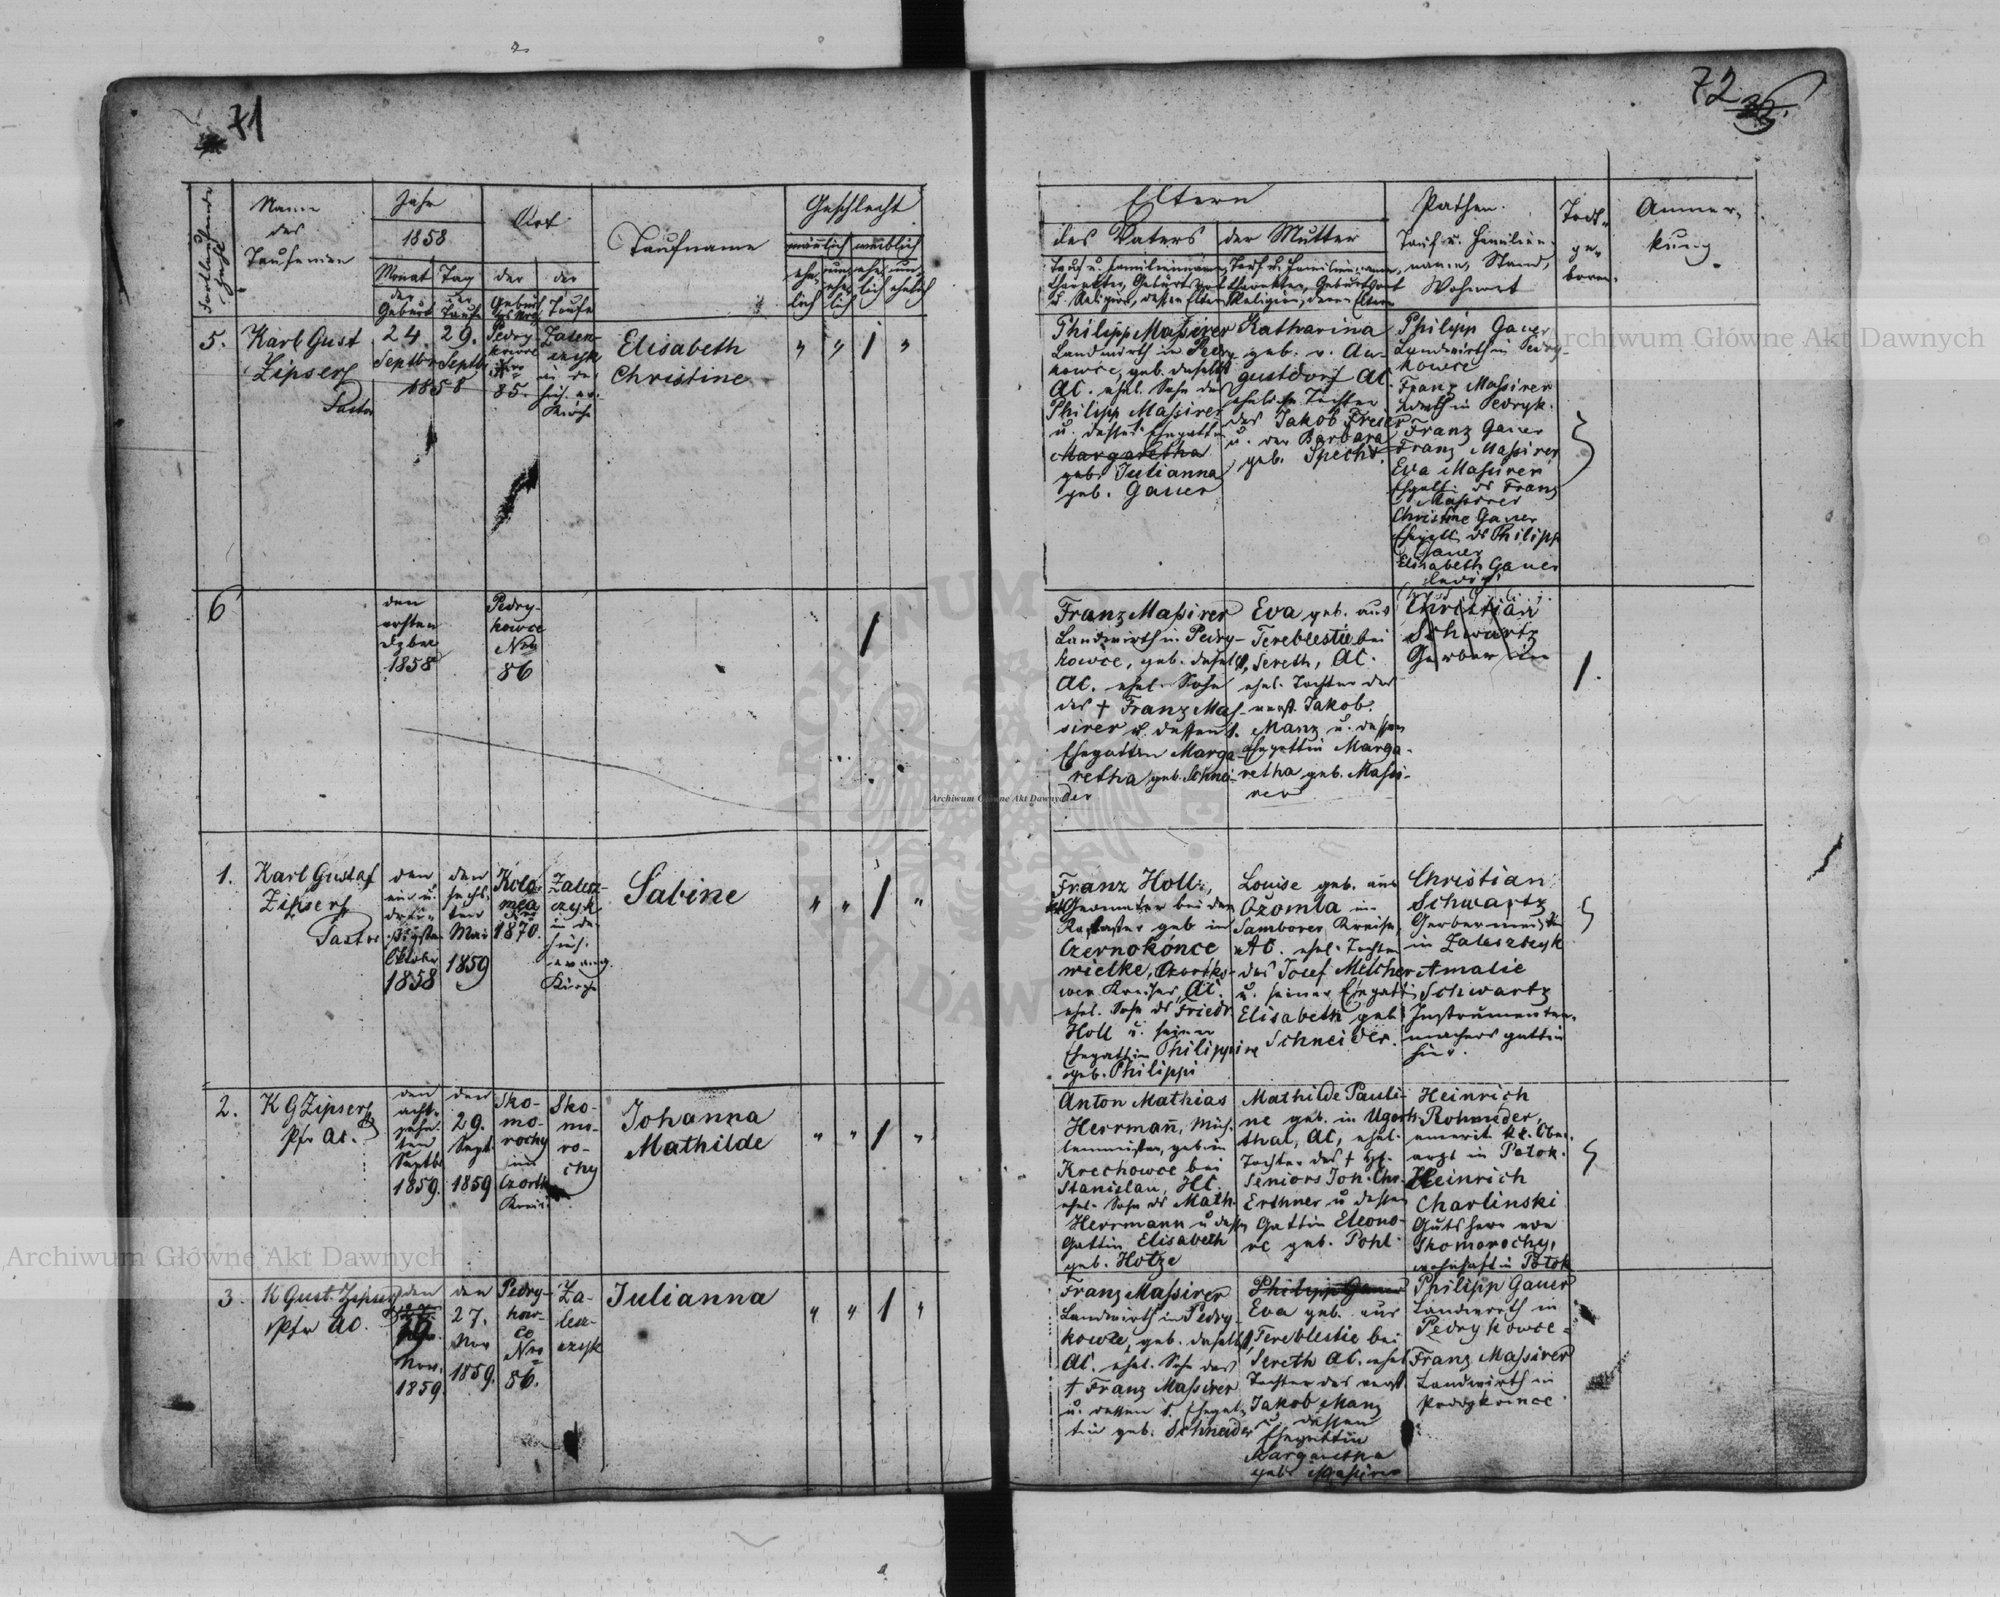 71
72
Fortlaufende Zahl
Name
des
Taufenden
Jahr
1858
Monat Tag
der
Geburt
der
Taufe
Ort
der
Geburt
der
Taufe
Taufname
Geschlecht
männlich weiblich
ehelich
unehelich
ehelich
unehelich
5.
Karl Gust
Zipser
Pastor
24.
Septbr
29.
Septbr
1858
Pedry-
kowce
Nro
85.
Zalesz-
czyk
in der
Kirche
Elisabeth
Christine
" " 1 "
6
den
ersten
Dzber
1858
Pedry-
kowce
Nro
86
1
1.
Karl Gustaf
Zipser
Pastor
den
ein u.
drei-
ßigsten
Oktober
1858
den
sechs-
ten
Mai
1859
Kolo-
mea
Nro
1870.
Zalesz-
czyk
in der
evang.
Kirche
Sabine
" " 1 "
2.
K G Zipser
Pfr AC.
den
acht-
zehn-
ten
Septbr
1859.
den
29.
Sept.
1859
Sko-
mo-
rochy
im
Czortk.
Kreis
Sko-
mo-
ro-
chy
Johanna
Mathilde
" " 1 "
3.
K Gust. Zipser
Pfr AC.
den
Nov.
1859
den
27.
Nov
1859.
Pedry-
kow-
ce
Nro
86.
Za-
lesz-
czyk
Julianna
" " 1 "
Eltern
des Vaters der Mutter
Tauf u. Familienname,
Charakter, Geburtsort
u. Religion, dessen Eltern
Tauf u. Familienname,
Charakter, Geburtsort
Religion, deren Eltern
Pathen.
Tauf u. Familien-
name, Stand,
Wohnort
Todt-
ge-
boren.
Anmer-
kung.
Philipp Maßirer
Landwirth in Pedry-
kowce, geb. daselbst
AC. ehel. Sohn des
Philipp Massirer
u. dessen Ehegattin
Margaretha
geb. Julianna
geb. Gauer
Katharina
geb. v. Au-
gustdorf AC
eheliche Tochter
des Jakob Freier
u. der Barbara
geb. Specht.
Philipp Gauer
Landwirth in Pedry-
kowce
Franz Massirer
Landwirth in Pedryk.
Franz Gauer
Franz Massirer
Eva Massirer
Ehgatt. ds Franz
Massirer
Christine Gauer
Ehegatt. ds Philipp
Gauer
Elisabeth Gauer
ledig
Franz Maßirer
Landwirth in Pedry-
kowce, geb. daselbst,
AC. ehel. Sohn
des + Franz Mas-
sirer u. dessen s.
Ehegattin Marga-
retha geb. Schnei-
der
Eva geb. aus
Tereblestie bei
Sereth, AC.
ehel. Tochter des
verst. Jakob
Manz u. dessen
Ehegattin Marga-
retha geb. Massi-
rer
Christian
Schwartz
Gerber in
1.
Franz Holl,
Geometer bei dem
Kataster geb in
Czernokónce
wielke, Czortko-
wer Kreises, AC.
ehel. Sohn ds Friedr
Holl u. seiner
Ehegattin Philippine
geb. Philippi
Louise geb. aus
Ozomla im
Samborer Kreise,
AC. ehel. Tochter
des Josef Melcher
u. seiner Ehegatt.
Elisabeth geb
Schneider.
Christian
Schwartz
Gerbermeister
in Zaleszczyk
Amalie
Schwartz
Instrumenten-
machers gattin
hier.
Anton Mathias
Herrmañ, Müh-
lenmeister, geb in
Krechowce bei
Stanislau, HC.
ehel. Sohn ds Math.
Herrmann u dessen
Gattin Elisabeth
geb. Hotze
Mathilde Pauli-
ne geb. in Ugarts-
thal, AC, ehel.
Tochter des +
Seniors Joh. Chr.
Erthner u dessen
Gattin Eleono-
re geb. Pohl.
Heinrich
Rohmeder,
emerit. kk. Ober-
arzt in Potok.
Heinrich
Charlinski
Gutsherr von
Skomorochy,
wohnhaft in Potok
Franz Massirer
Landwirth in Pedry-
kowce, geb. daselbst,
AC. ehel. Sohn des
+ Franz Massirer
u. dessen s. Ehegat-
tin geb. Schneider
Philipp Gauer
Eva geb. aus
Tereblestie bei
Sereth AC. ehel
Tochter des verst
Jakob Manz
u dessen
Ehegattin
Margaretha
geb. Massirer
Philipp Gauer
Landwirth in
Pedrykowce
Franz Massirer
Landwirth in
Pedrykowce.
Archiwum Główne Akt Dawnych
Archiwum Główne Akt Dawnych
Archiwum Główne Akt Dawnych